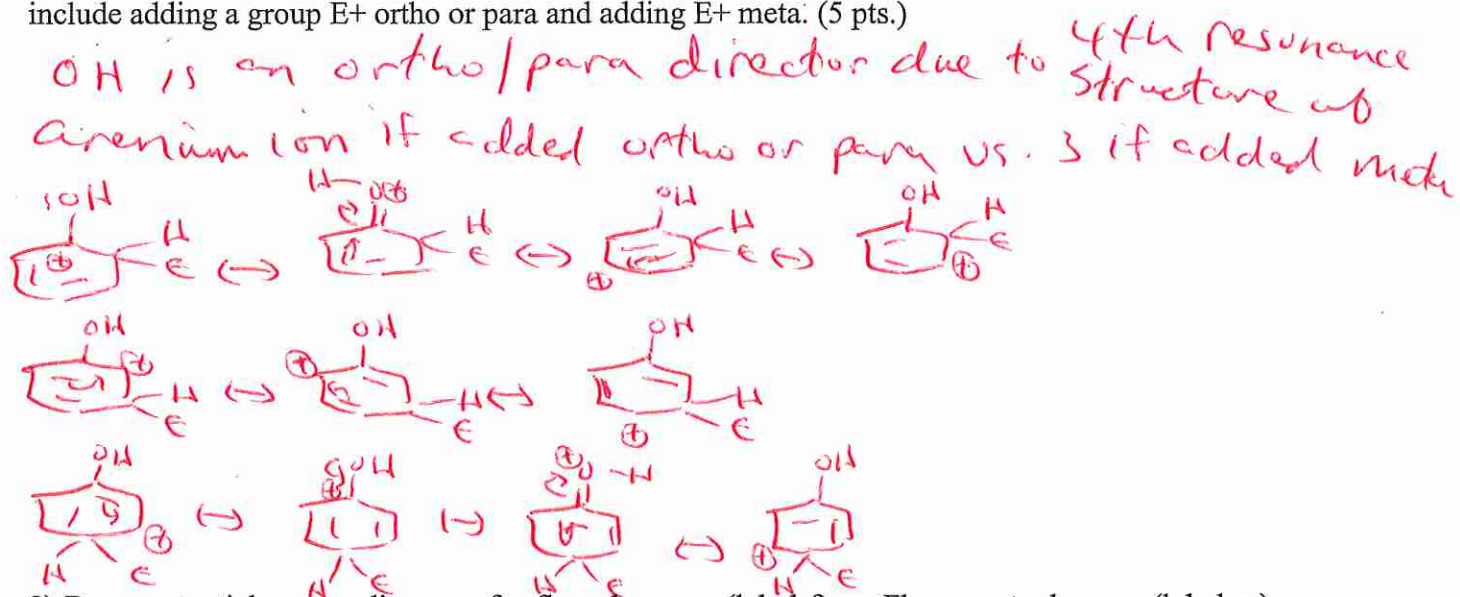 include adding a group E+ ortho or para and adding E+ meta. (5 pts.)
OH is an ortho/para director due to 4th resonance
structure of
arenium ion if added ortho or para vs. 3 if added meta
:OH H-O⊕ OH OH
⊕ H E ↔ H E ↔ ⊕ H E ↔ H E ⊕
OH OH OH
⊕ H E ↔ ⊕ H E ↔ ⊕ H E
OH :OH ⊕O-H OH
⊕ H E ↔ ⊕ H E ↔ H E ↔ ⊕ H E